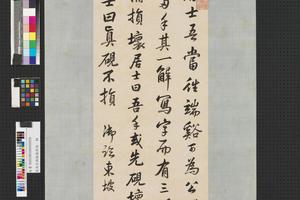 士吾當往端谿可為公
手其一解寫字而有三
備損壞居士曰吾手或先硯壞
士曰真硯不損 御臨東坡